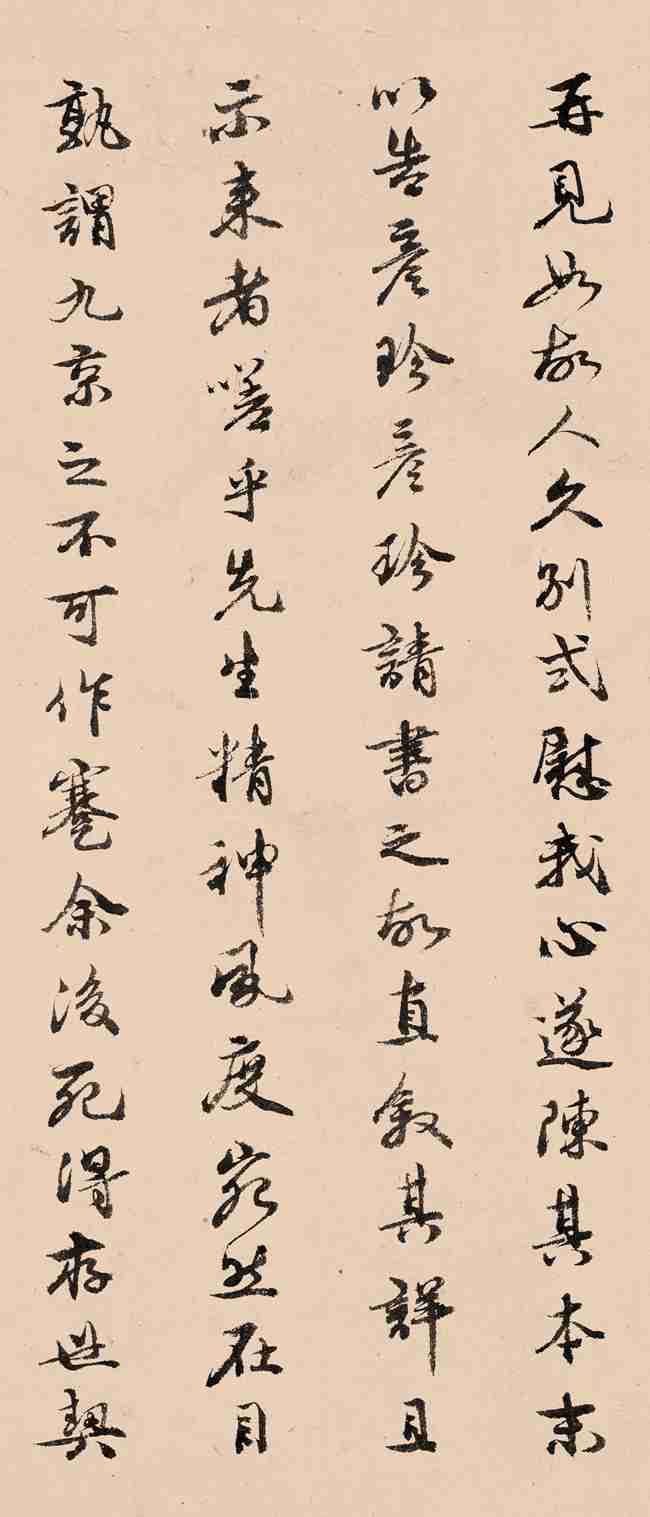 再見如故人久別式慰我心遂陳其本末
以告彥珍彥珍請書之故直叙其詳且
示来者嗟乎先生精神風度宛然在目
孰謂九京之不可作蹇余後死得存世契